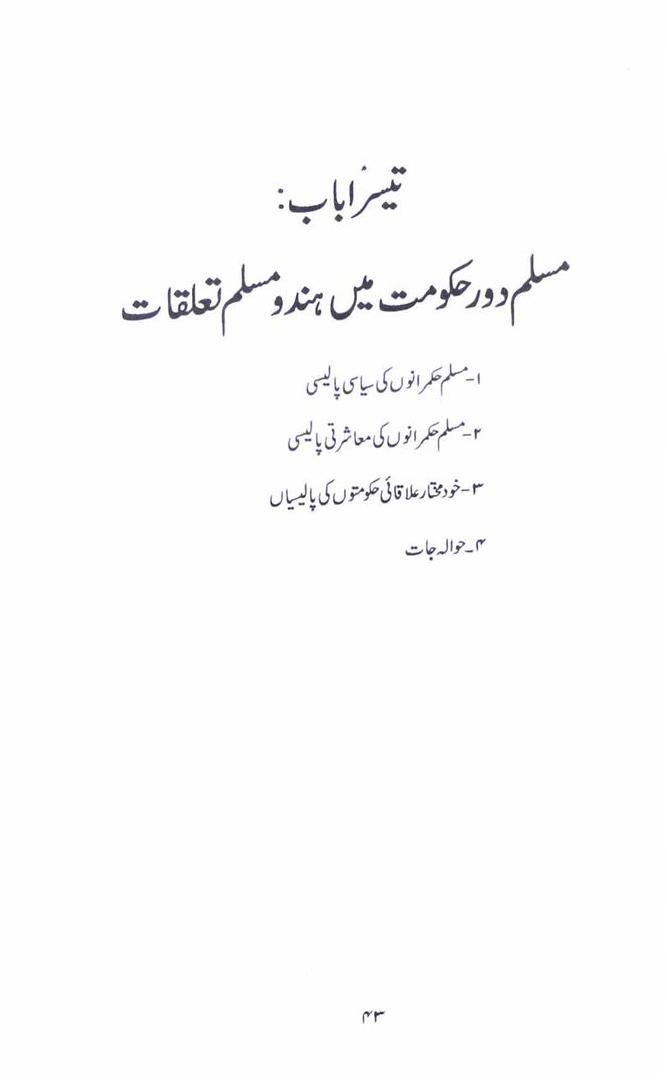 تیسرا باب:
مسلم دور حکومت میں ہندو مسلم تعلقات
۱-مسلم حکمرانوں کی سیاسی پالیسی
۲-مسلم حکمرانوں کی معاشرتی پالیسی
۳-خود مختار علاقائی حکومتوں کی پالیسیاں
۴-حوالہ جات
۴۳